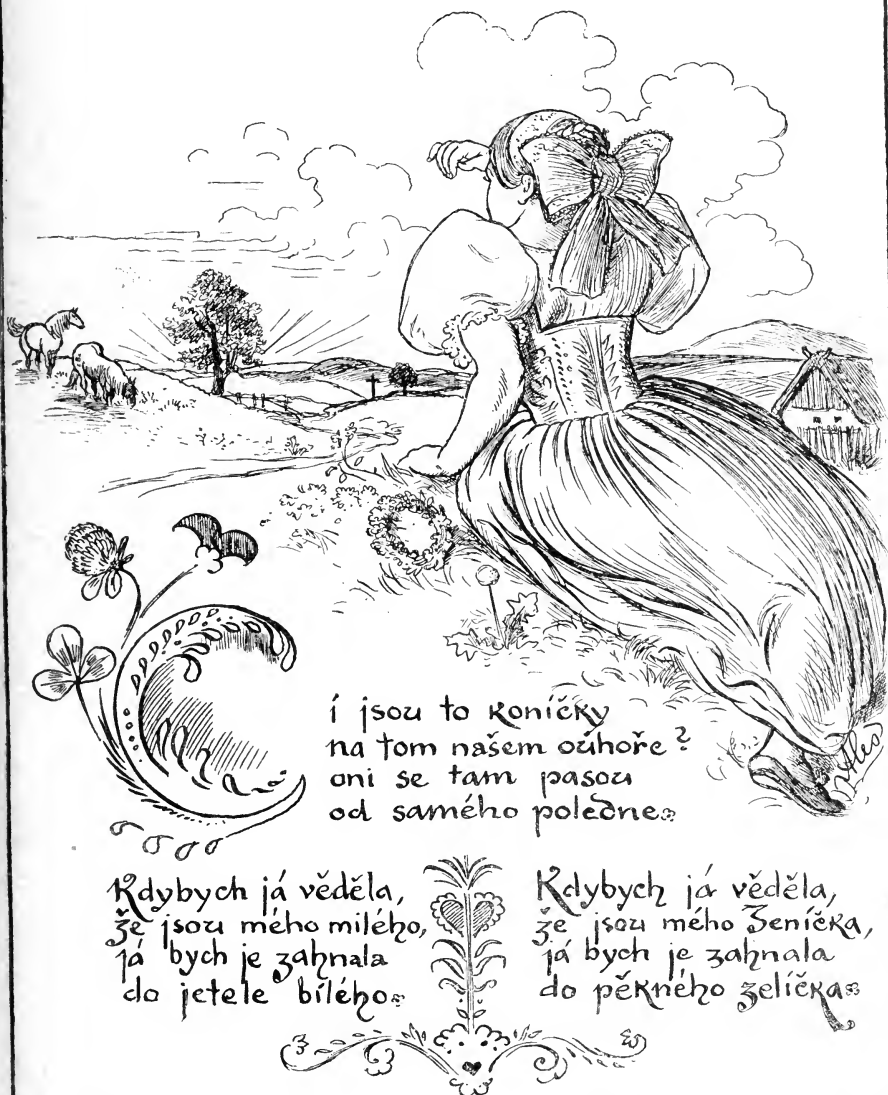 Čí jsou to koníčky
na tom našem oúhoře?
oni se tam pasou
od samého poledne.
Kdybych já věděla,
že jsou mého milého,
já bych je zahnala
do jetele bílého.
Kdybych já věděla,
že jsou mého Ženíčka,
já bych je zahnala
do pěkného zelíčka.